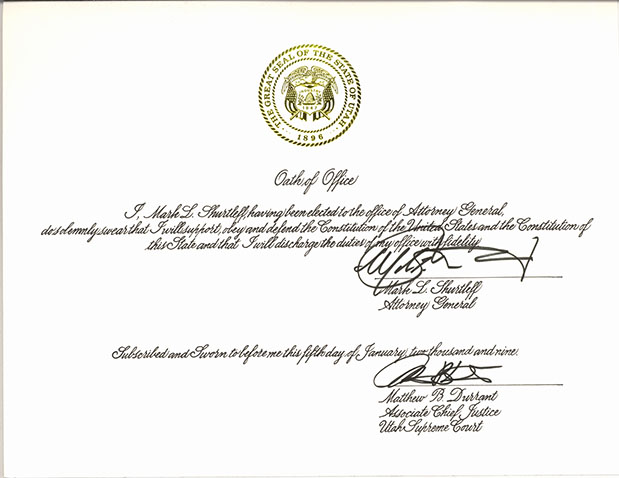 THE GREAT SEAL OF THE STATE OF UTAH
1896
Oath of Office
I, Mark L. Shurtleff, having been elected to the office of Attorney General,
do solemnly swear that I will support, obey and defend the Constitution of the United States and the Constitution of
this State and that I will discharge the duties of my office with fidelity.
Mark L. Shurtleff
Attorney General
Subscribed and Sworn to before me this fifth day of January, two thousand and nine.
Matthew B. Durrant
Associate Chief Justice
Utah Supreme Court